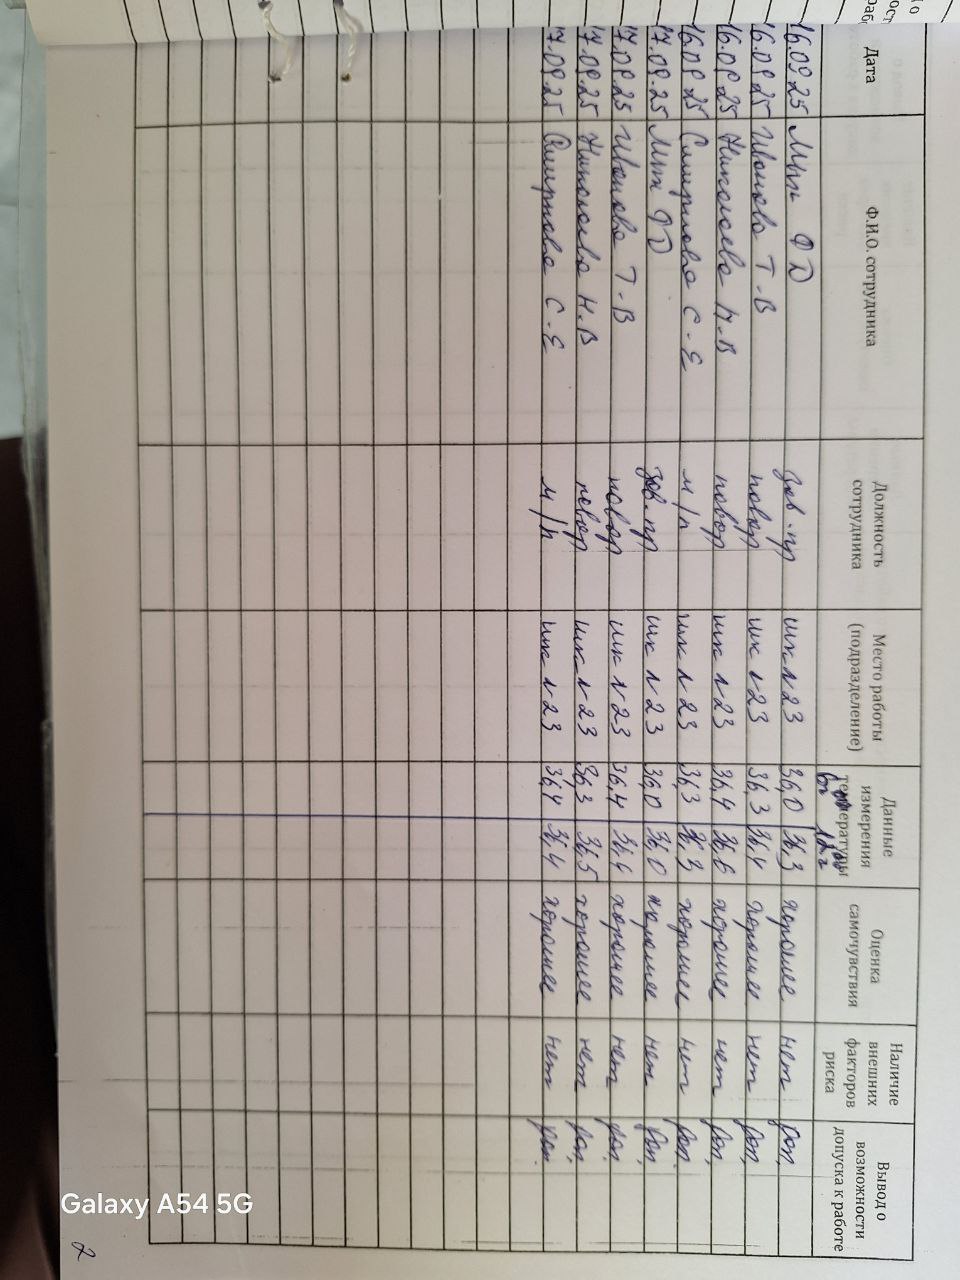 Дата Ф.И.О. сотрудника Должность сотрудника Место работы (подразделение) Данные измерения температуры Оценка самочувствия Наличие внешних факторов риска Вывод о возможности допуска к работе
16.09.25 ФД Зав.пр шк N23 36,0 36,3 хорошее нет доп.
16.09.25 Иванова Т.В повар шк N23 36,3 36,4 хорошее нет доп.
16.09.25 Николаева Н.В повар шк N23 36,4 36,6 хорошее нет доп.
16.09.25 Смирнова С.Е м/п шк N23 36,3 36,3 хорошее нет доп.
17.09.25 ФД Зав.пр шк N23 36,0 36,0 хорошее нет доп.
17.09.25 Иванова Т.В повар шк N23 36,4 36,6 хорошее нет доп.
17.09.25 Николаева Н.В повар шк N23 36,3 36,5 хорошее нет доп.
17.09.25 Смирнова С.Е м/п шк N23 36,4 36,4 хорошее нет доп.
2
Galaxy A54 5G